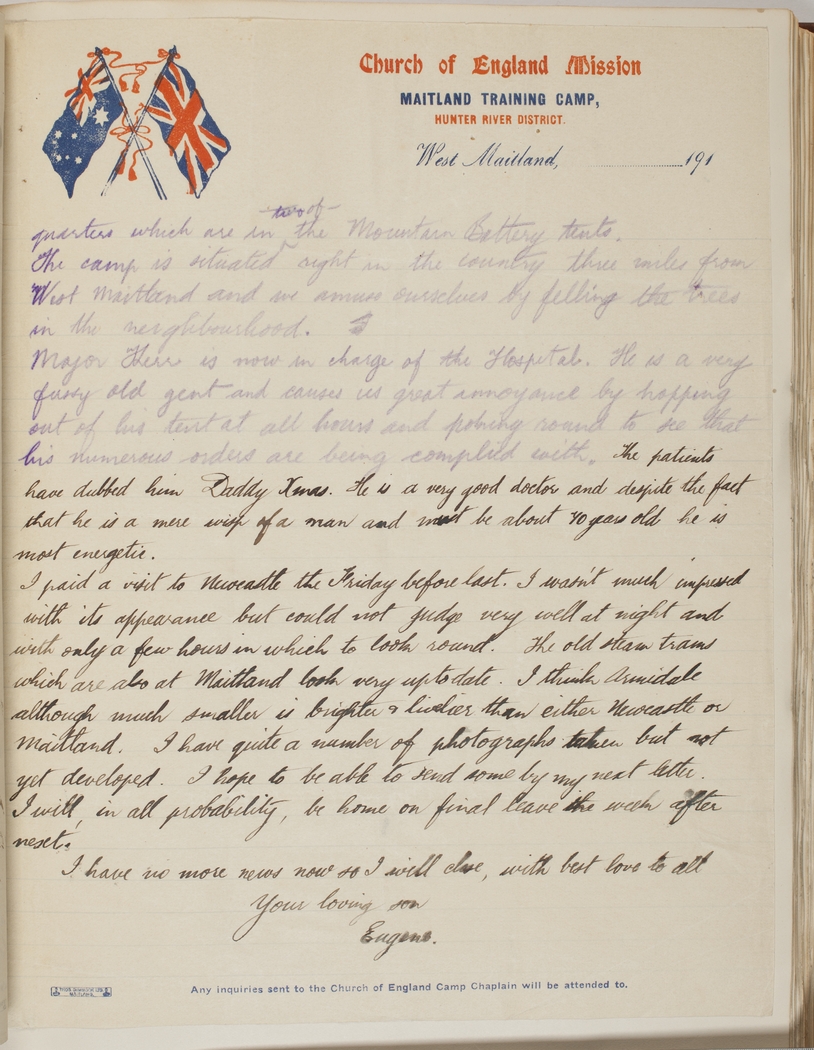 Church of England Mission
MAITLAND TRAINING CAMP,
HUNTER RIVER DISTRICT.
West Maitland, 191
two of
quarters which are in the Mountain Battery tents.
The camp is situated right in the country three miles from
West Maitland and we amuse ourselves by felling the trees
in the neighbourhood.
Major Herr is now in charge of the Hospital. He is a very
fussy old gent and causes us great annoyance by hopping
out of his tent at all hours and poking round to see that
his numerous orders are being complied with. The patients
have dubbed him Daddy Xmas. He is a very good doctor and despite the fact
that he is a mere wisp of a man and must be about 70 years old he is
most energetic.
I paid a visit to Newcastle the Friday before last. I wasn't much impressed
with its appearance but could not judge very well at night and
with only a few hours in which to look round. The old steam trams
which are also at Maitland look very uptodate. I think Armidale
although much smaller is brighter & livelier than either Newcastle or
Maitland. I have quite a number of photographs taken but not
yet developed. I hope to be able to send some by my next letter.
I will, in all probability, be home on final leave the week after
next.
I have no more news now so I will close, with best love to all
Your loving son
Eugene.
Any inquiries sent to the Church of England Camp Chaplain will be attended to.